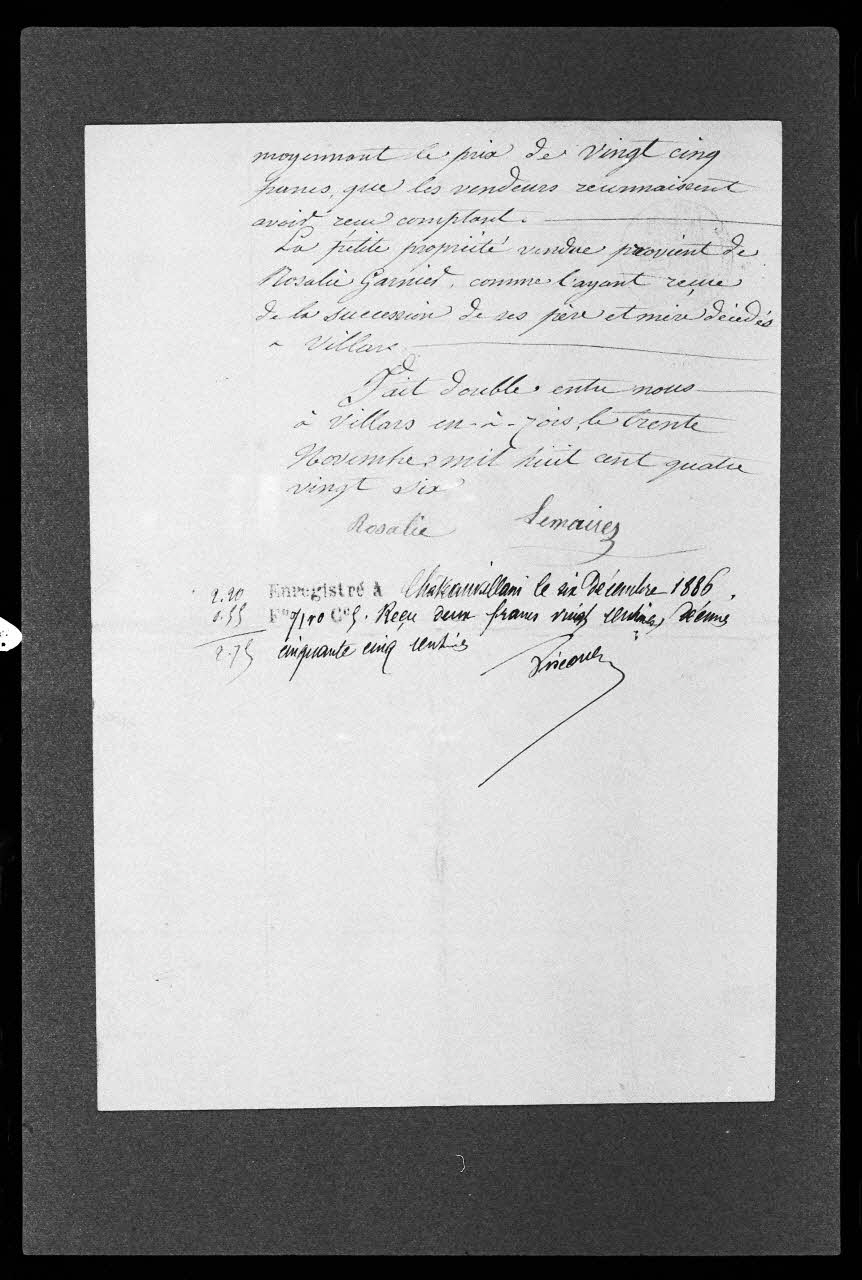 moyennant le prix de vingt cinq
francs, que les vendeurs reconnaissent
avoir reçu comptant.
La petite propriété vendue provient de
Rosalie Garnier, comme l'ayant reçue
de la succession de ses père et mère décédés
à Villars
Fait double entre nous
à Villars en-à-zois, le trente
Novembre mil huit cent quatre
vingt six
Rosalie Lemaire
2.20 Enregistré à Chateauvillain le six Décembre 1886.
0.55 F° Cse. Reçu deux francs vingt centimes, décimes
2.75 cinquante cinq centimes